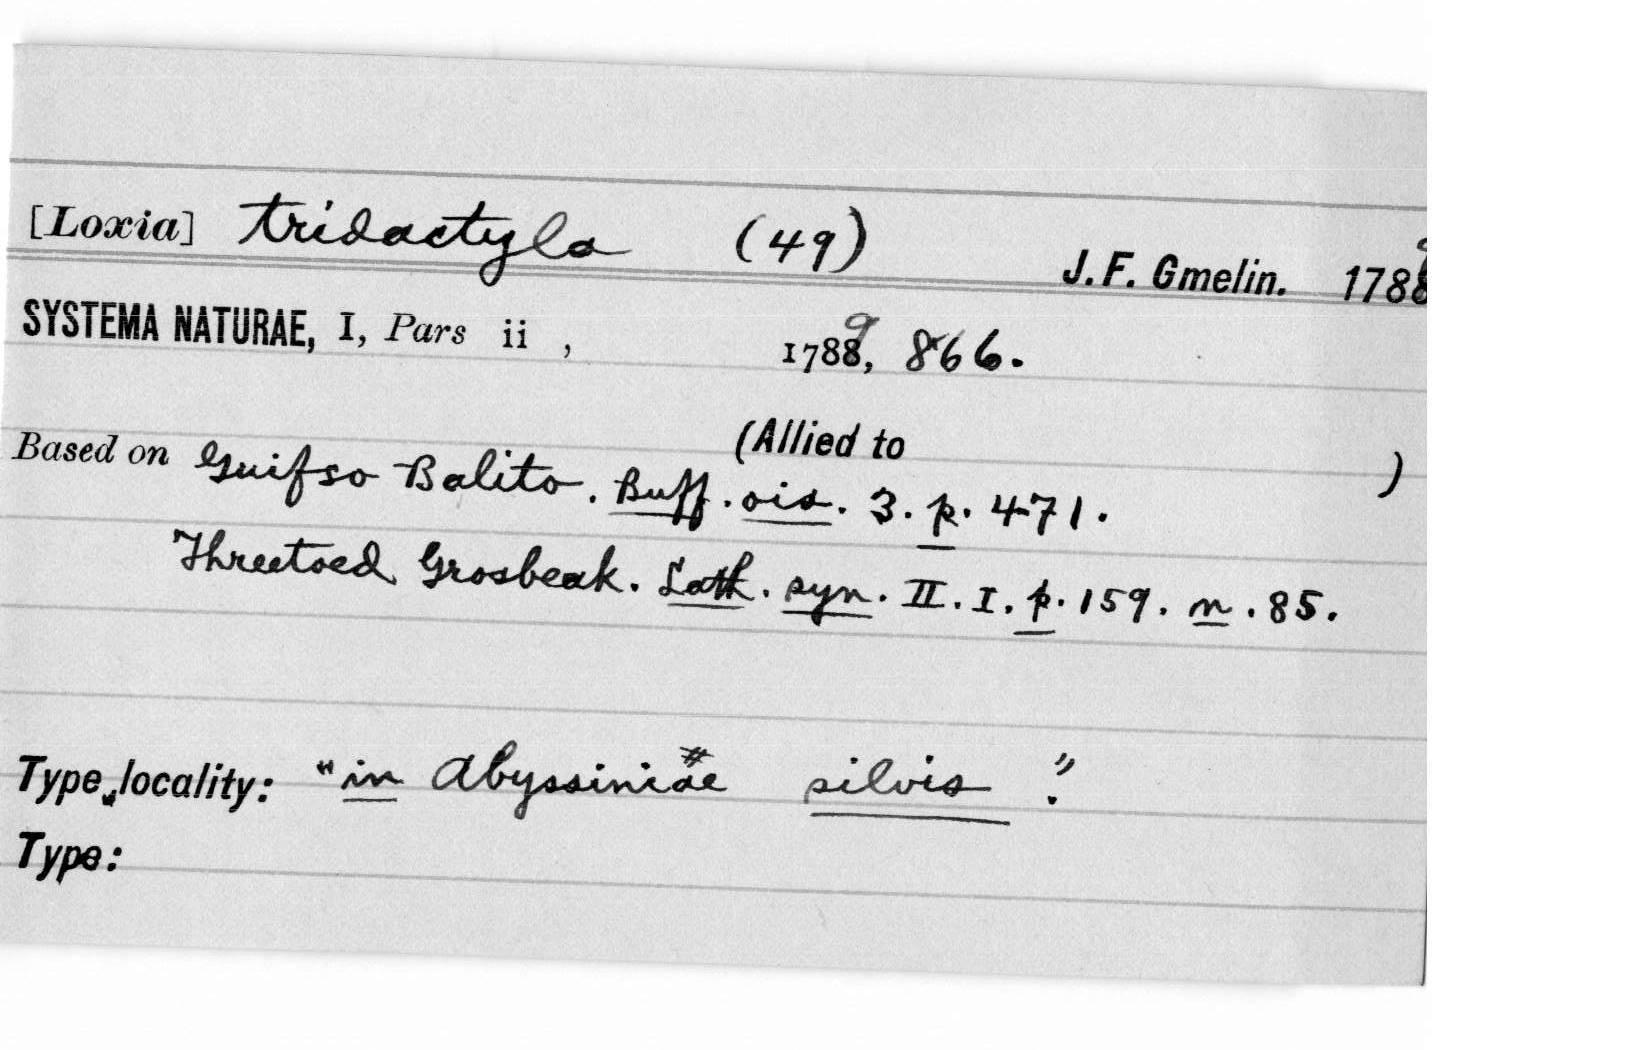 [Loxia] tridactyla (49) J. F. Gmelin. 1789
SYSTEMA NATURAE, I, Pars ii , 1789, 866.
(Allied to )
Based on Guifso Balito. Buff. ois. 3. p. 471.
Threetoed Grosbeak. Lath. syn. II. I. p. 159. n. 85.
Type locality: "in Abyssiniae silvis".
Type: